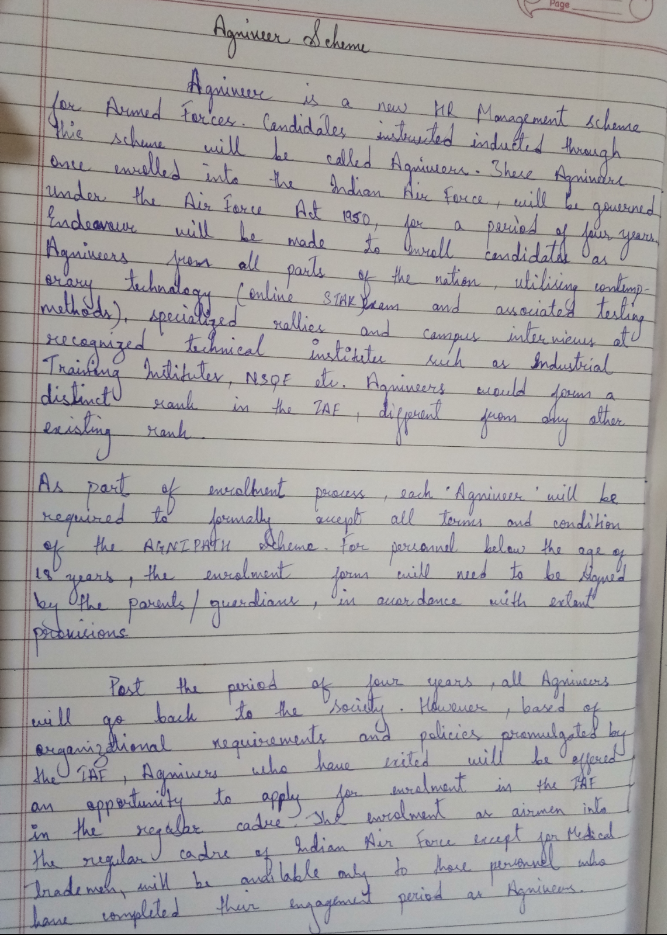 Page
Agniveer Scheme
Agniveer is a new HR Management scheme
for Armed Forces. Candidates instructed inducted through
this scheme will be called Agniveers. These Agniveers
once enrolled into the Indian Air Force, will be governed
under the Air Force Act 1950, for a period of four years.
Endeavour will be made to enroll candidates as
Agniveers from all parts of the nation, utilising contemp-
orary technology (online STAR Exam and associated testing
methods), specialized rallies and campus interviews at
recognized technical institutes such as Industrial
Training Institutes, NSQF etc. Agniveers would form a
distinct rank in the IAF, different from any other
existing rank.
As part of enrolment process, each 'Agniveer' will be
required to formally accept all terms and condition
of the AGNIPATH Scheme. For personnel below the age of
18 years, the enrolment form will need to be signed
by the parents/guardians, in accordance with extant
provisions
Post the period of four years, all Agniveers
will go back to the society. However, based of
organizational requirements and policies promulgated by
the IAF, Agnivers who have exited will be offered
an opportunity to apply for enrolment in the IAF
in the regular cadre. The enrolment as airmen into
the regular cadre of Indian Air Force except for Medical
Tradesmen, will be available only to those personnel who
have completed their engagement period as Agniveers.